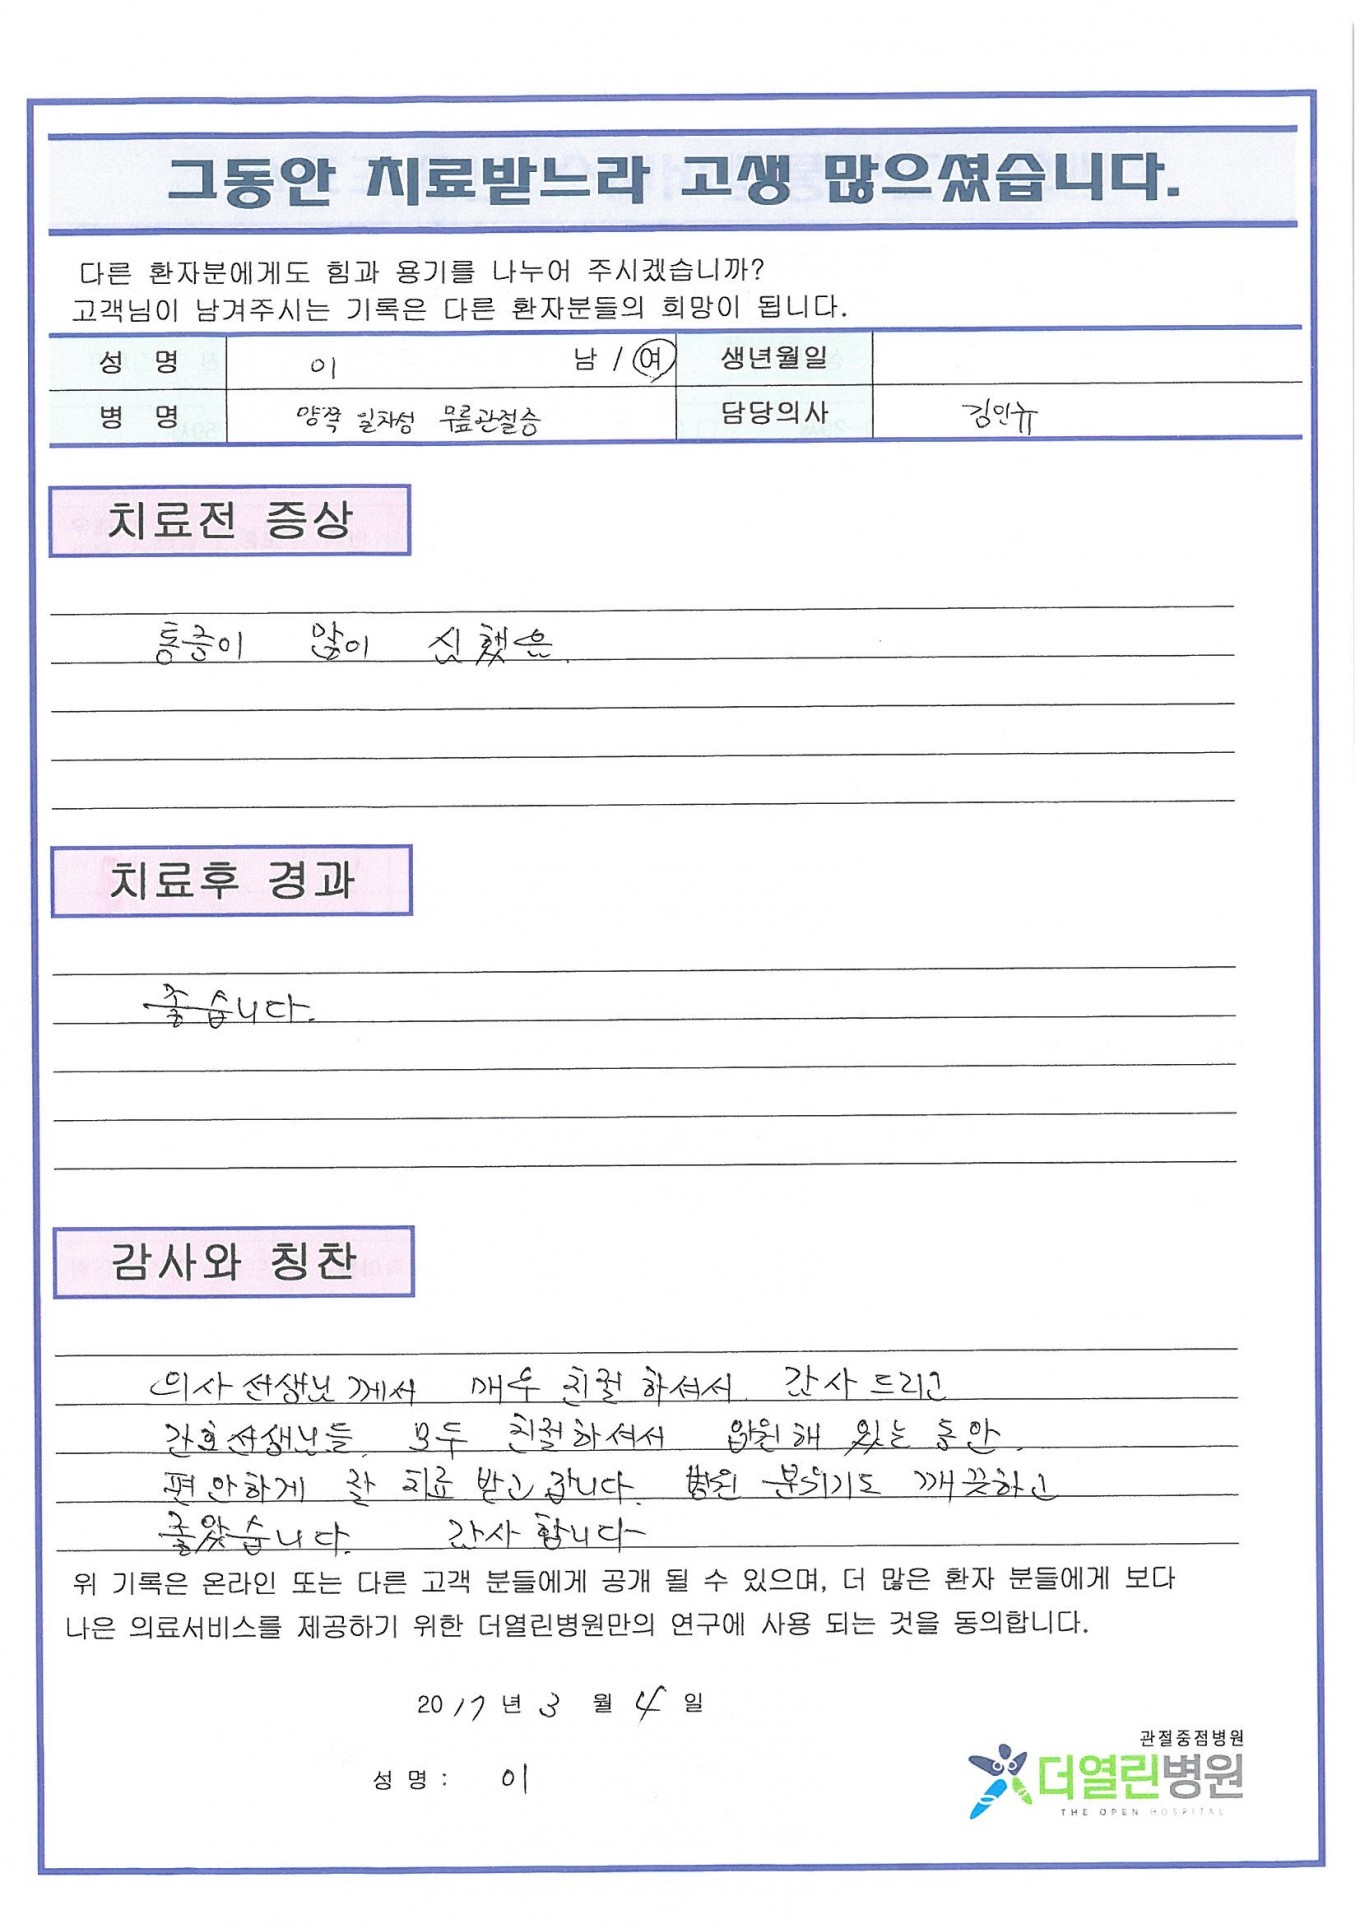 그동안 치료받느라 고생 많으셨습니다.
다른 환자분에게도 힘과 용기를 나누어 주시겠습니까?
고객님이 남겨주시는 기록은 다른 환자분들의 희망이 됩니다.
성 명 이 남 / 여 생년월일
병 명 양쪽 일차성 무릎관절증 담당의사 김인규
치료전 증상
통증이 많이 심했음.
치료후 경과
좋습니다.
감사와 칭찬
의사선생님께서 매우 친절하셔서 감사드리고
간호선생님들 모두 친절하셔서 입원해 있는 동안
편안하게 잘 치료 받고 갑니다. 병원 분위기도 깨끗하고
좋았습니다. 감사합니다
위 기록은 온라인 또는 다른 고객 분들에게 공개 될 수 있으며, 더 많은 환자 분들에게 보다
나은 의료서비스를 제공하기 위한 더열린병원만의 연구에 사용 되는 것을 동의합니다.
2017년 3 월 4 일
성 명 : 이
관절중점병원
더열린병원
THE OPEN HOSPITAL